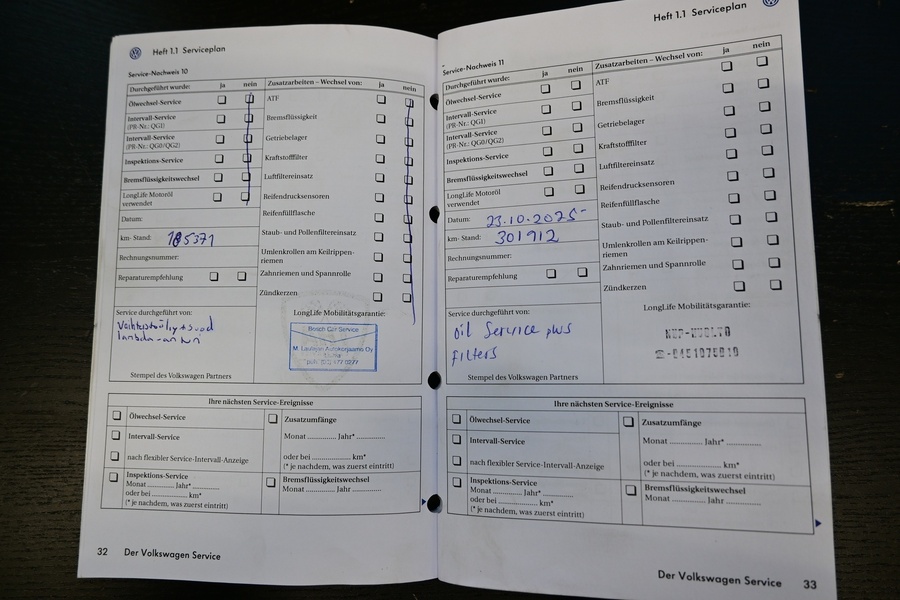 Heft 1.1 Serviceplan
Service-Nachweis 10
Durchgeführt wurde: ja nein
Ölwechsel-Service
Intervall-Service
(PR-Nr.: QG1)
Intervall-Service
(PR-Nr.: QG0/QG2)
Inspektions-Service
Bremsflüssigkeitswechsel
LongLife Motoröl
verwendet
Datum:
km- Stand: 185371
Rechnungsnummer:
Reparaturempfehlung
Service durchgeführt von:
Stempel des Volkswagen Partners
Zusatzarbeiten – Wechsel von: ja nein
ATF
Bremsflüssigkeit
Getriebelager
Kraftstofffilter
Luftfiltereinsatz
Reifendrucksensoren
Reifenfüllflasche
Staub- und Pollenfiltereinsatz
Umlenkrollen am Keilrippen-
riemen
Zahnriemen und Spannrolle
Zündkerzen
LongLife Mobilitätsgarantie:
Bosch Car Service
Ihre nächsten Service-Ereignisse
Ölwechsel-Service
Intervall-Service
nach flexibler Service-Intervall-Anzeige
Inspektions-Service
Monat ............ Jahr* ............
oder bei .................. km*
(* je nachdem, was zuerst eintritt)
Zusatzumfänge
Monat ............ Jahr* ............
oder bei .................. km*
(* je nachdem, was zuerst eintritt)
Bremsflüssigkeitswechsel
Monat ............ Jahr ............
32 Der Volkswagen Service
Heft 1.1 Serviceplan
Service-Nachweis 11
Durchgeführt wurde: ja nein
Ölwechsel-Service
Intervall-Service
(PR-Nr.: QG1)
Intervall-Service
(PR-Nr.: QG0/QG2)
Inspektions-Service
Bremsflüssigkeitswechsel
LongLife Motoröl
verwendet
Datum: 23.10.2025
km- Stand: 301912
Rechnungsnummer:
Reparaturempfehlung
Service durchgeführt von:
Oil Service plus
Filters
Stempel des Volkswagen Partners
Zusatzarbeiten – Wechsel von: ja nein
ATF
Bremsflüssigkeit
Getriebelager
Kraftstofffilter
Luftfiltereinsatz
Reifendrucksensoren
Reifenfüllflasche
Staub- und Pollenfiltereinsatz
Umlenkrollen am Keilrippen-
riemen
Zahnriemen und Spannrolle
Zündkerzen
LongLife Mobilitätsgarantie:
Ihre nächsten Service-Ereignisse
Ölwechsel-Service
Intervall-Service
nach flexibler Service-Intervall-Anzeige
Inspektions-Service
Monat ............ Jahr* ............
oder bei .................. km*
(* je nachdem, was zuerst eintritt)
Zusatzumfänge
Monat ............ Jahr* ............
oder bei .................. km*
(* je nachdem, was zuerst eintritt)
Bremsflüssigkeitswechsel
Monat ............ Jahr ............
Der Volkswagen Service 33